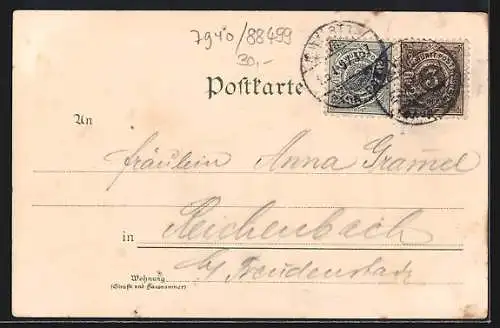 7940/88499
30,-
Postkarte
An
Fräulein Anna Gramel
in Reichenbach
b/ Freudenstadt
Wohnung
(Straße und Hausnummer)
3